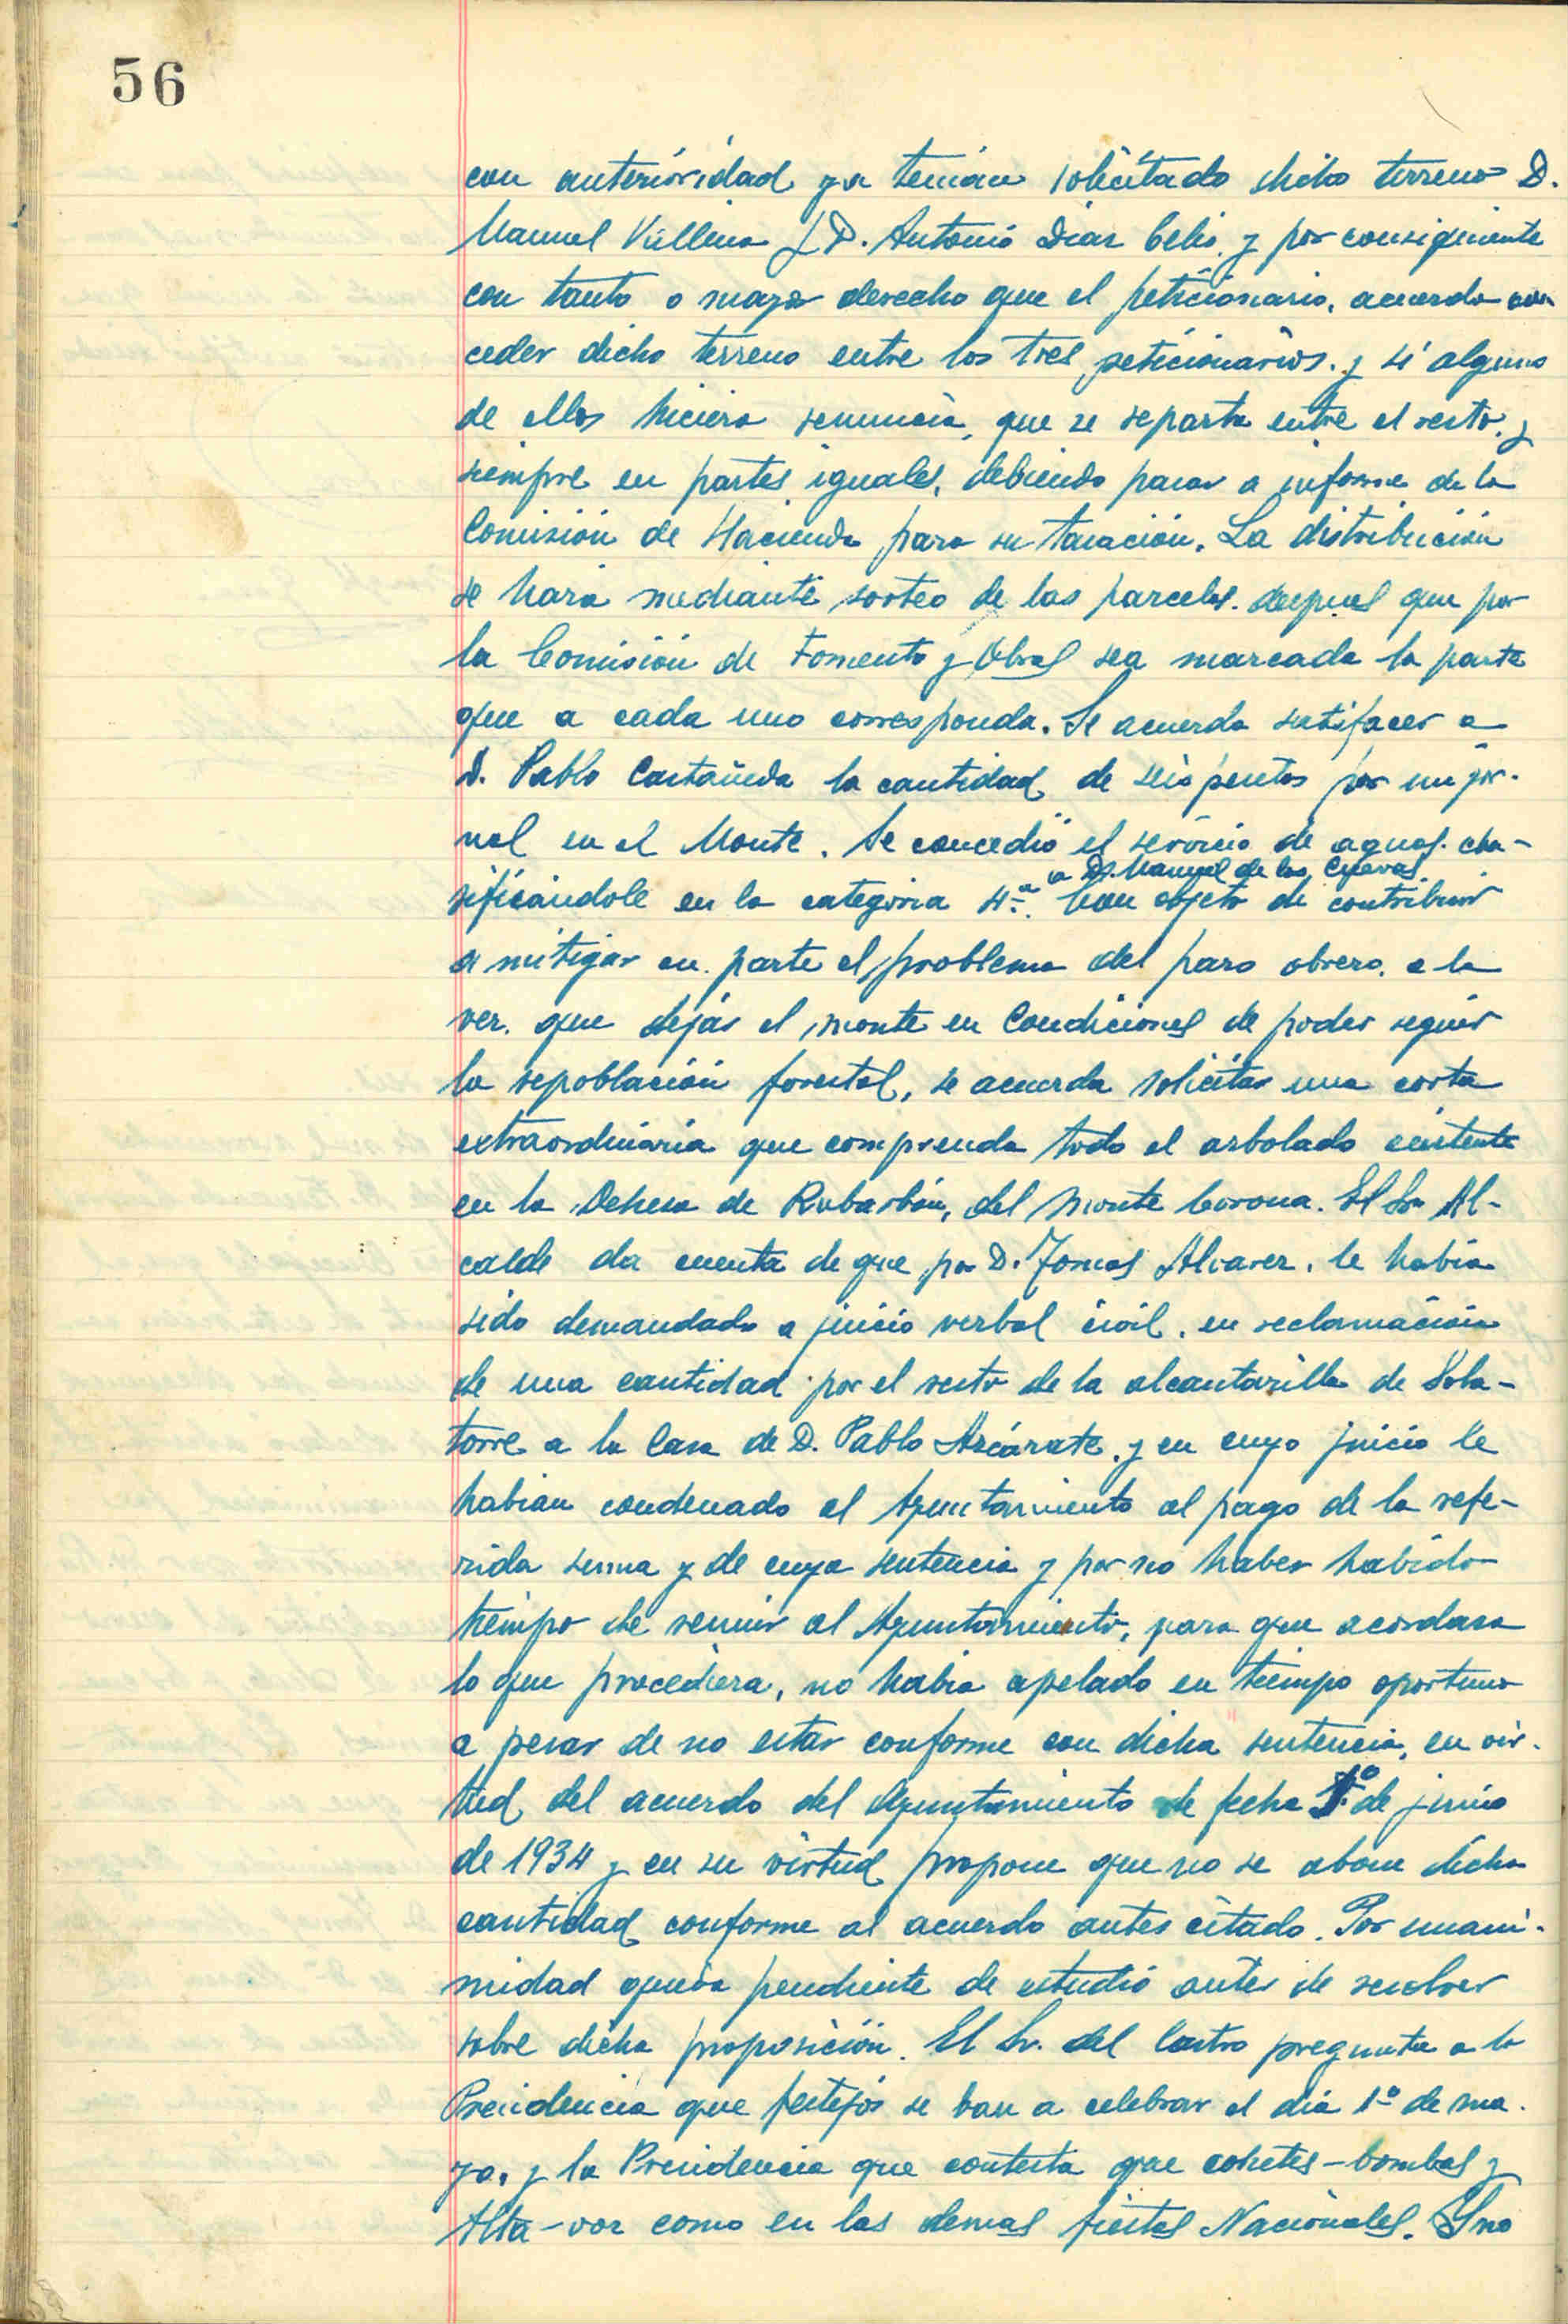 56
con anterióridad ya tenian solicitado dicho terreno D.
Manuel Villena y D. Antonio Diaz Celis, y por consiguiente
con tanto o mayor derecho que el peticionario, acuerda con
ceder dicho terreno entre los tres peticionarios. y si alguno
de ellos hiciera renuncia, que se reparta entre el resto, y
siempre en partes iguales, debiendo pasar a informe de la
Comisión de Hacienda para su tasación. La distribución
se hara mediante sorteo de las parcelas. despues que por
la Comisión de Fomento y Obras sea marcada la parte
que a cada uno corresponda. Se acuerda satisfacer a
D. Pablo Castañeda la cantidad de seis pesetas por un jor-
nal en el Monte. Se concedió el servicio de aguas. cla-
a D. Manuel de las Cuevas
sificándole en la categoria 4ª. Con objeto de contribuir
a mitigar en parte el problema del paro obrero, a la
vez. que dejár el monte en Condiciones de poder seguir
la repoblación forestal, se acuerda solicitar una corta
extraordinaria que comprenda todo el arbolado existente
en la Dehesa de Rubarbón, del Monte Corona. El Sr. Al-
calde da cuenta de que por D. Tomas Alvarez, le habia
sido demandado a juicio verbal civil, en reclamación
de una cantidad por el resto de la alcantarilla de Sola-
torre a la Casa de D. Pablo Azcárate, y en cuyo juicio le
habian condenado al Ayuntamiento al pago de la refe-
rida suma y de cuya sentencia y por no haber habido
tiempo de reunir al Ayuntamiento, para que acordara
lo que procediera, no habia apelado en tiempo oportuno
a pesar de no estar conforme con dicha sentencia, en vir-
tud del acuerdo del Ayuntamiento de fecha 1º de junio
de 1934 y en su virtud propone que no se abone dicha
cantidad conforme al acuerdo antes citado. Por unani-
midad queda pendiente de estudio antes de resolver
sobre dicha proposición. El Sr. del Castro pregunta a la
Presidencia que festejos se ban a celebrar el dia 1º de ma-
yo, y la Presidencia que contesta que cohetes-bombas y
Alta-voz como en las demas fiestas Nacionales. Y no